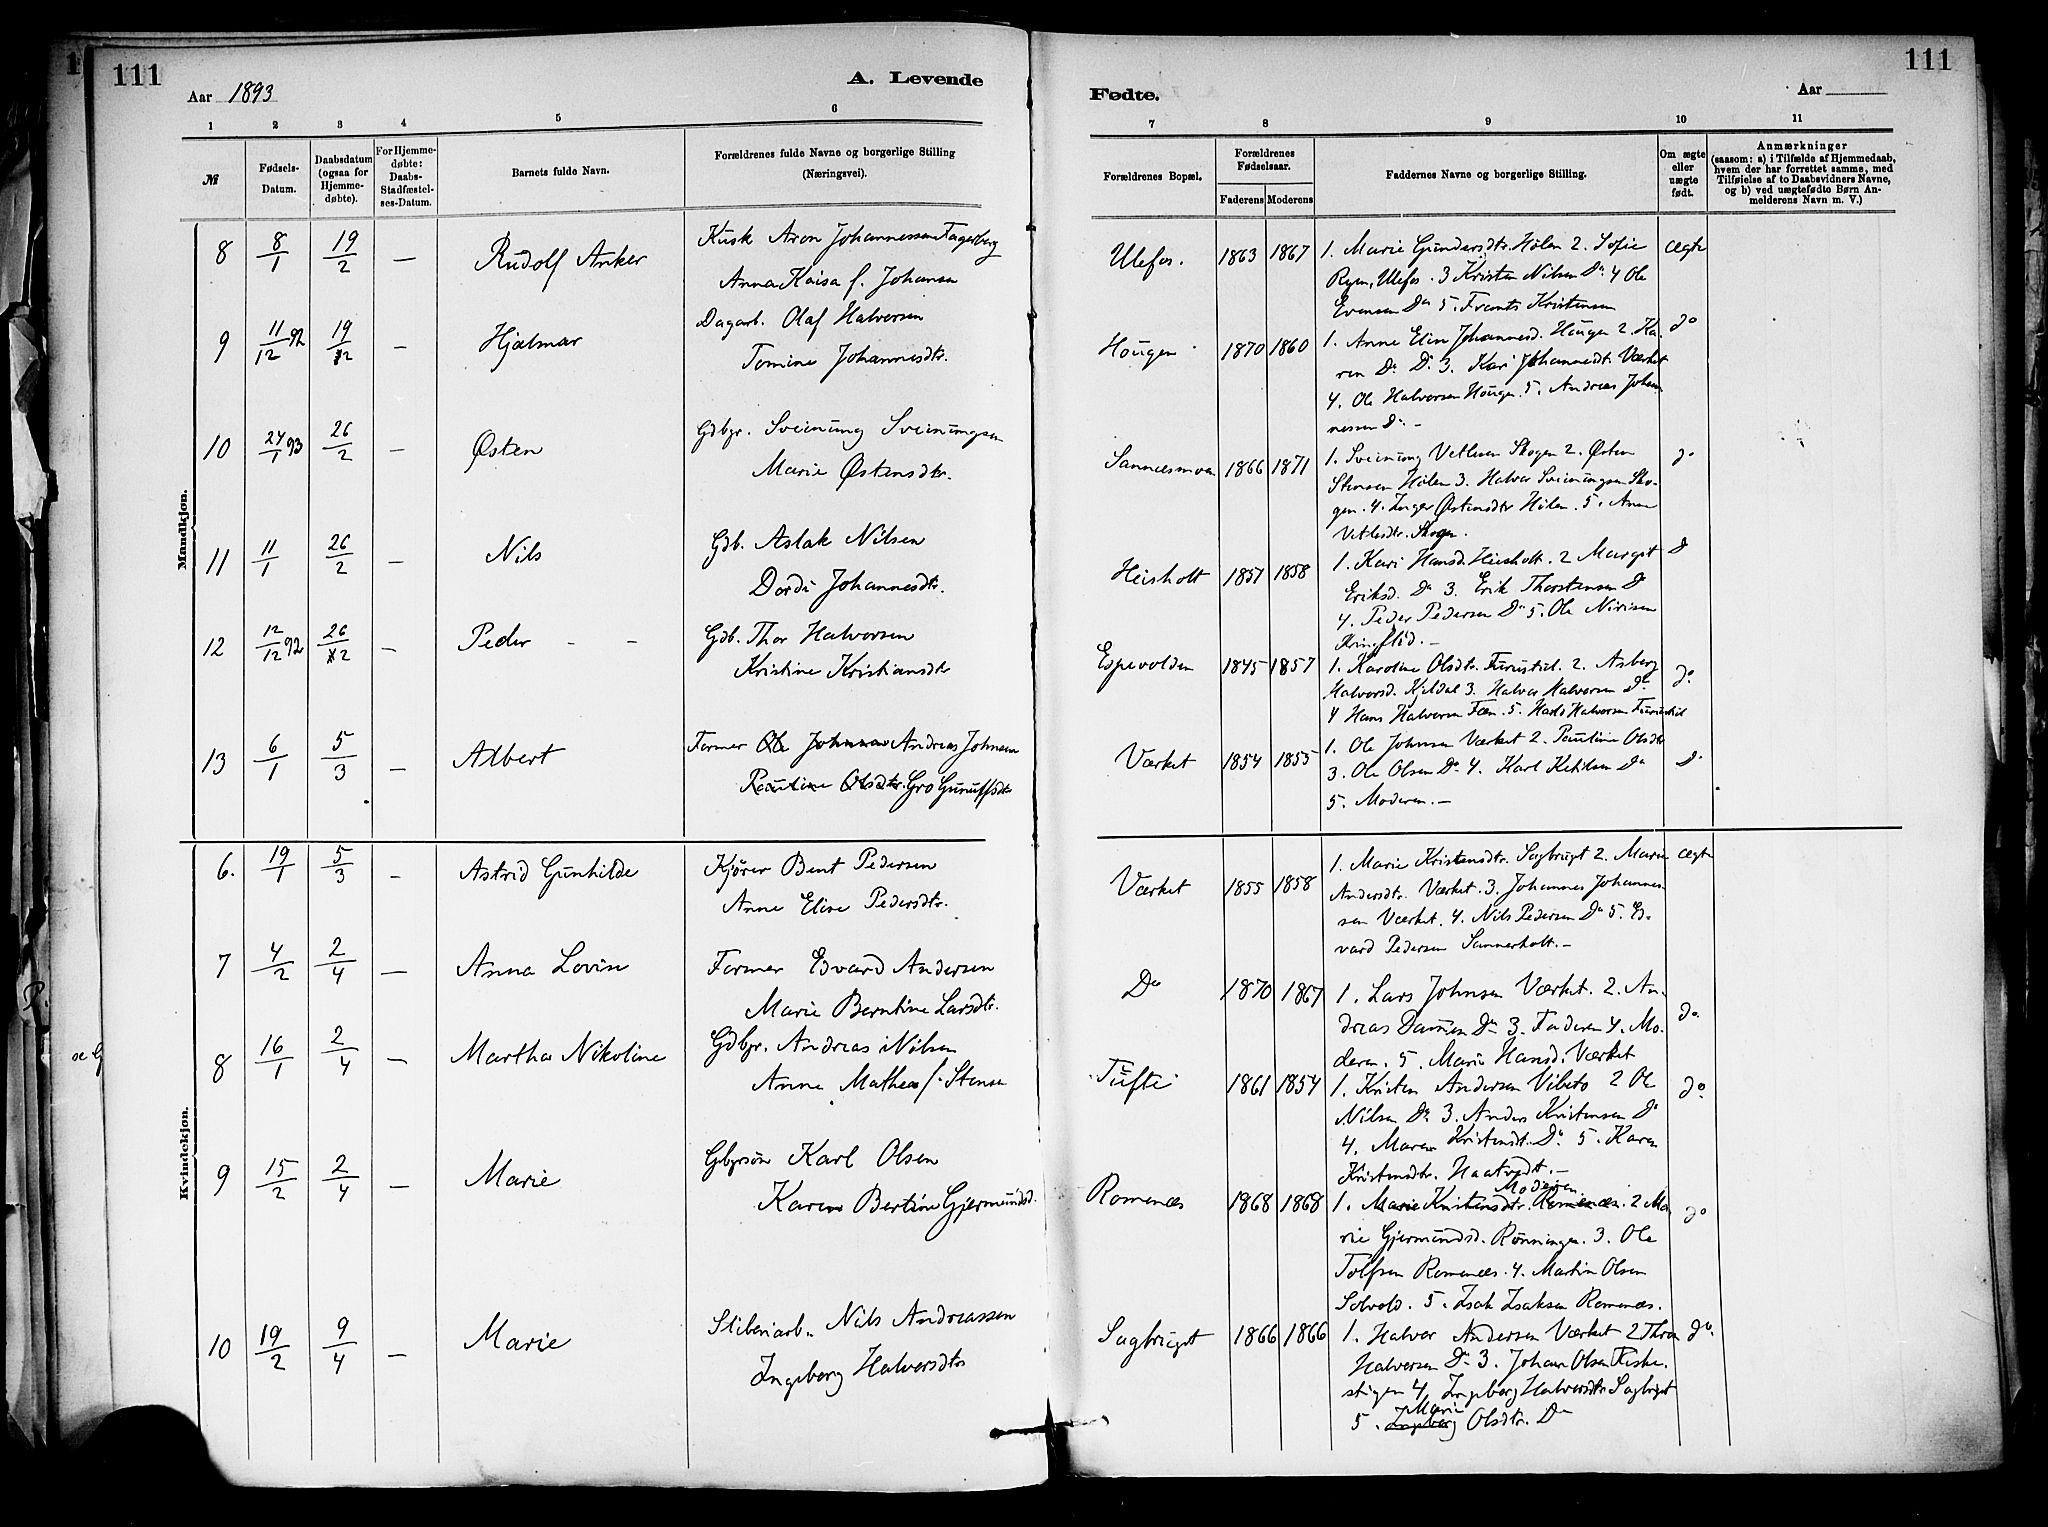 111
A. Levende
Aar 1893
1 2 3 4 5 6
№ Fødsels-Datum. Daabsdatum (ogsaa for Hjemmedøbte). For Hjemmedøbte: Daabs-Stadfæstelses-Datum. Barnets fulde Navn. Forældrenes fulde Navne og borgerlige Stilling (Næringsvei).
Mandkjøn.
8 8/1 19/2 — Rudolf Anker Kusk Aron Johannessen Fagerberg
Anna Kaisa f. Johansen
9 11/12 92 19/2 — Hjalmar Dagarb. Olaf Halvorsen
Tomine Johannesdtr.
10 24/1 93 26/2 — Østen Gdbgr. Sveinung Sveinungsen
Marie Østensdtr.
11 11/1 26/2 — Nils Gdb. Aslak Nilsen
Dordi Johannesdtr.
12 12/12 92 26/2 — Peder - - Gdb. Thor Halvorsen
Kristine Kristiansdtr
13 6/1 5/3 — Albert Former Ole Johnsen Andreas Johnsen
Pauline Olsdtr. Gro Gunulfsdtr
Kvindekjøn.
6. 19/1 5/3 - Astrid Gunhilde Kjører Bent Pedersen
Anne Elise Pedersdtr.
7 4/2 2/4 — Anna Lovine Former Edvard Andersen
Marie Berntine Larsdtr.
8 16/1 2/4 — Martha Nikoline Gdbgr. Andreas Nilsen
Anne Mathea f. Stensen
9 15/2 2/4 — Marie Gbrsøn Karl Olsen
Karen Bertine Gjermundsd.
10 19/2 9/4 — Marie Sliberiarb. Nils Andreassen
Ingeborg Halvorsdtr
111
Fødte.
Aar
7 8 9 10 11
Forældrenes Bopæl. Forældrenes Fødselsaar. Faderens Moderens Faddernes Navne og borgerlige Stilling. Om ægte eller uægte født. Anmærkninger
(saasom: a) i Tilfælde af Hjemmedaab,
hvem der har forrettet samme, med
Tilføielse af to Daabsvidners Navne,
og b) ved uægtefødte Børn Anmelderens Navn m. V.)
Ulefos. 1863 1867 1. Marie Gundersdtr. Holen 2. Sofie ægte
Ryen, Ulefos. 3 Kristen Nilsen Do 4 Ole
Evensen Do 5. Frants Kristensen
Hougen 1870 1860 1. Anne Elin Johannesd. Hougen 2. Ka- do
ren Do Do 3. Kari Johannedtr Værket
4. Ole Halvorsen Hougen. 5. Andreas Johan
nessen Do -
Sannæsmoen 1866 1871 1. Sveinung Vetlesen Skogen 2. Østen do
Stensen Holen 3. Halvor Sveinungsen Sko-
gen. 4. Inger Østensdtr Holen. 5. Anne
Vetlesdtr. Skogen.
Heisholt 1857 1858 1. Kari Hansd. Heisholt. 2 Margit do
Eriksd. Do 3. Erik Thorstensen Do
4. Peder Pedersen Do 5. Ole Nirisen
Ringslid. —
Espevolden 1845 1857 1. Karoline Olsdtr. Furustul. 2. Asberg do
Halvorsd. Kjeldal 3. Halvor Halvorsen Do
4 Hans Halvorsen Fæn. 5. Hans Halvorsen Furustul
Værket 1854 1855 1. Ole Johnsen Værket 2. Pauline Olsdtr do
3. Ole Olsen Do 4. Karl Ketilsen Do
5. Moderen. —
Værket 1855 1858 1. Marie Kristensdtr. Sagbrugt 2. Marie ægte
Andersdtr. Værket. 3. Johannes Johannes-
sen Værket. 4. Nils Pedersen Do 5. Ed-
vard Pedersen Sannerholt. —
Do 1870 1867 1. Lars Johnsen Værket. 2. An- do
dreas Damsen Do 3. Faderen 4. Mo-
deren. 5. Marie Hansd. Værket
Tufte 1861 1854 1. Kristen Andersen Vibeto 2 Ole do
Nilsen Do 3. Anders Kristensen Do
4. Maren Kristensdt. Do 5. Karen
Kristensdtr. Haatvedt. —
Moderen
Romenæs 1868 1868 1. Marie Kristensdtr. Romenæs. 2 Ma- do
rie Gjermundsd. Rønningen. 3. Ole
Tolfsen Romenæs. 4. Martin Olsen
Solvold. 5. Isak Isaksen Romenæs.
Sagbruget 1866 1866 1. Halvor Andersen Værket 2 Thron do
Halvorsen Do 3. Johan Olsen Fiske-
stigen 4. Ingeborg Halvorsdtr Sagbruget
Marie
5. Ingeborg Olsdtr. Do